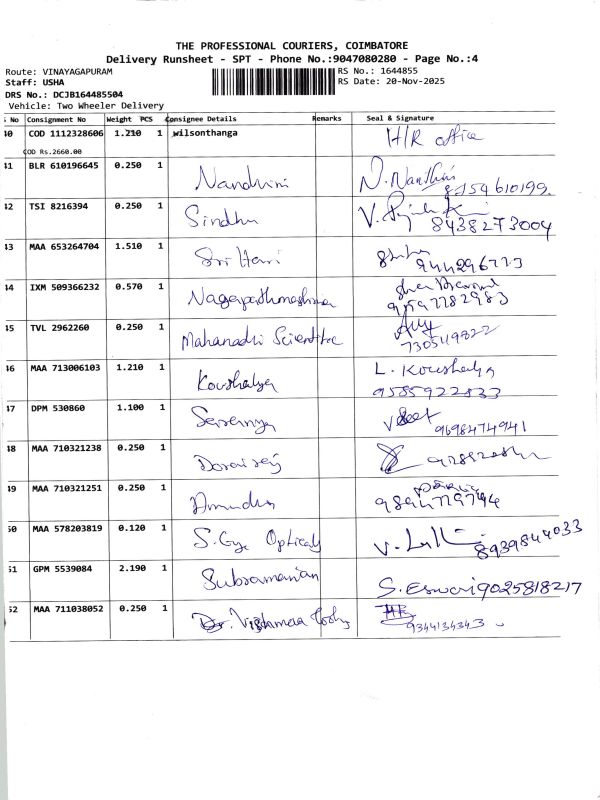 THE PROFESSIONAL COURIERS, COIMBATORE
Delivery Runsheet - SPT - Phone No.:9047080280 - Page No.:4
Route: VINAYAGAPURAM
RS No.: 1644855
Staff: USHA
RS Date: 20-Nov-2025
DRS No.: DCJB164485504
Vehicle: Two Wheeler Delivery
No Consignment No Weight PCS Consignee Details Remarks Seal & Signature
40 COD 1112328606 1.210 1 wilsonthanga H/R office
COD Rs.2660.00
41 BLR 610196645 0.250 1 Nandhini N. Nandhini 8154610199.
42 TSI 8216394 0.250 1 Sindhu V. 8438273004
43 MAA 653264704 1.510 1 Sri Hari
44 IXM 509366232 0.570 1
45 TVL 2962260 0.250 1 Mahanadhi Scientific
46 MAA 713006103 1.210 1 Koushalya L. Koushalya
9585922833
47 DPM 530860 1.100 1 9698474941
48 MAA 710321238 0.250 1 Dorairaj
49 MAA 710321251 0.250 1 Amudha
50 MAA 578203819 0.120 1 S. Opticals 8939844033
51 GPM 5539084 2.190 1 Subramanian S. Eswari 9025818217
52 MAA 711038052 0.250 1 Dr.
9344134343